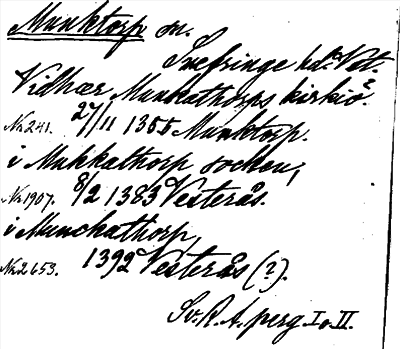 Munktorp sn.
Snefringe hd. Vstm.
Vidhær Munkathorps kirkio.
Nr 241. 27/11 1355 Munktorp.
i Mukkathorp socken,
Nr 1907. 8/2 1383 Vesterås.
i Munchathorp,
Nr 2653. 1392 Vesterås (?).
Sv. R. A. perg. I o. II.